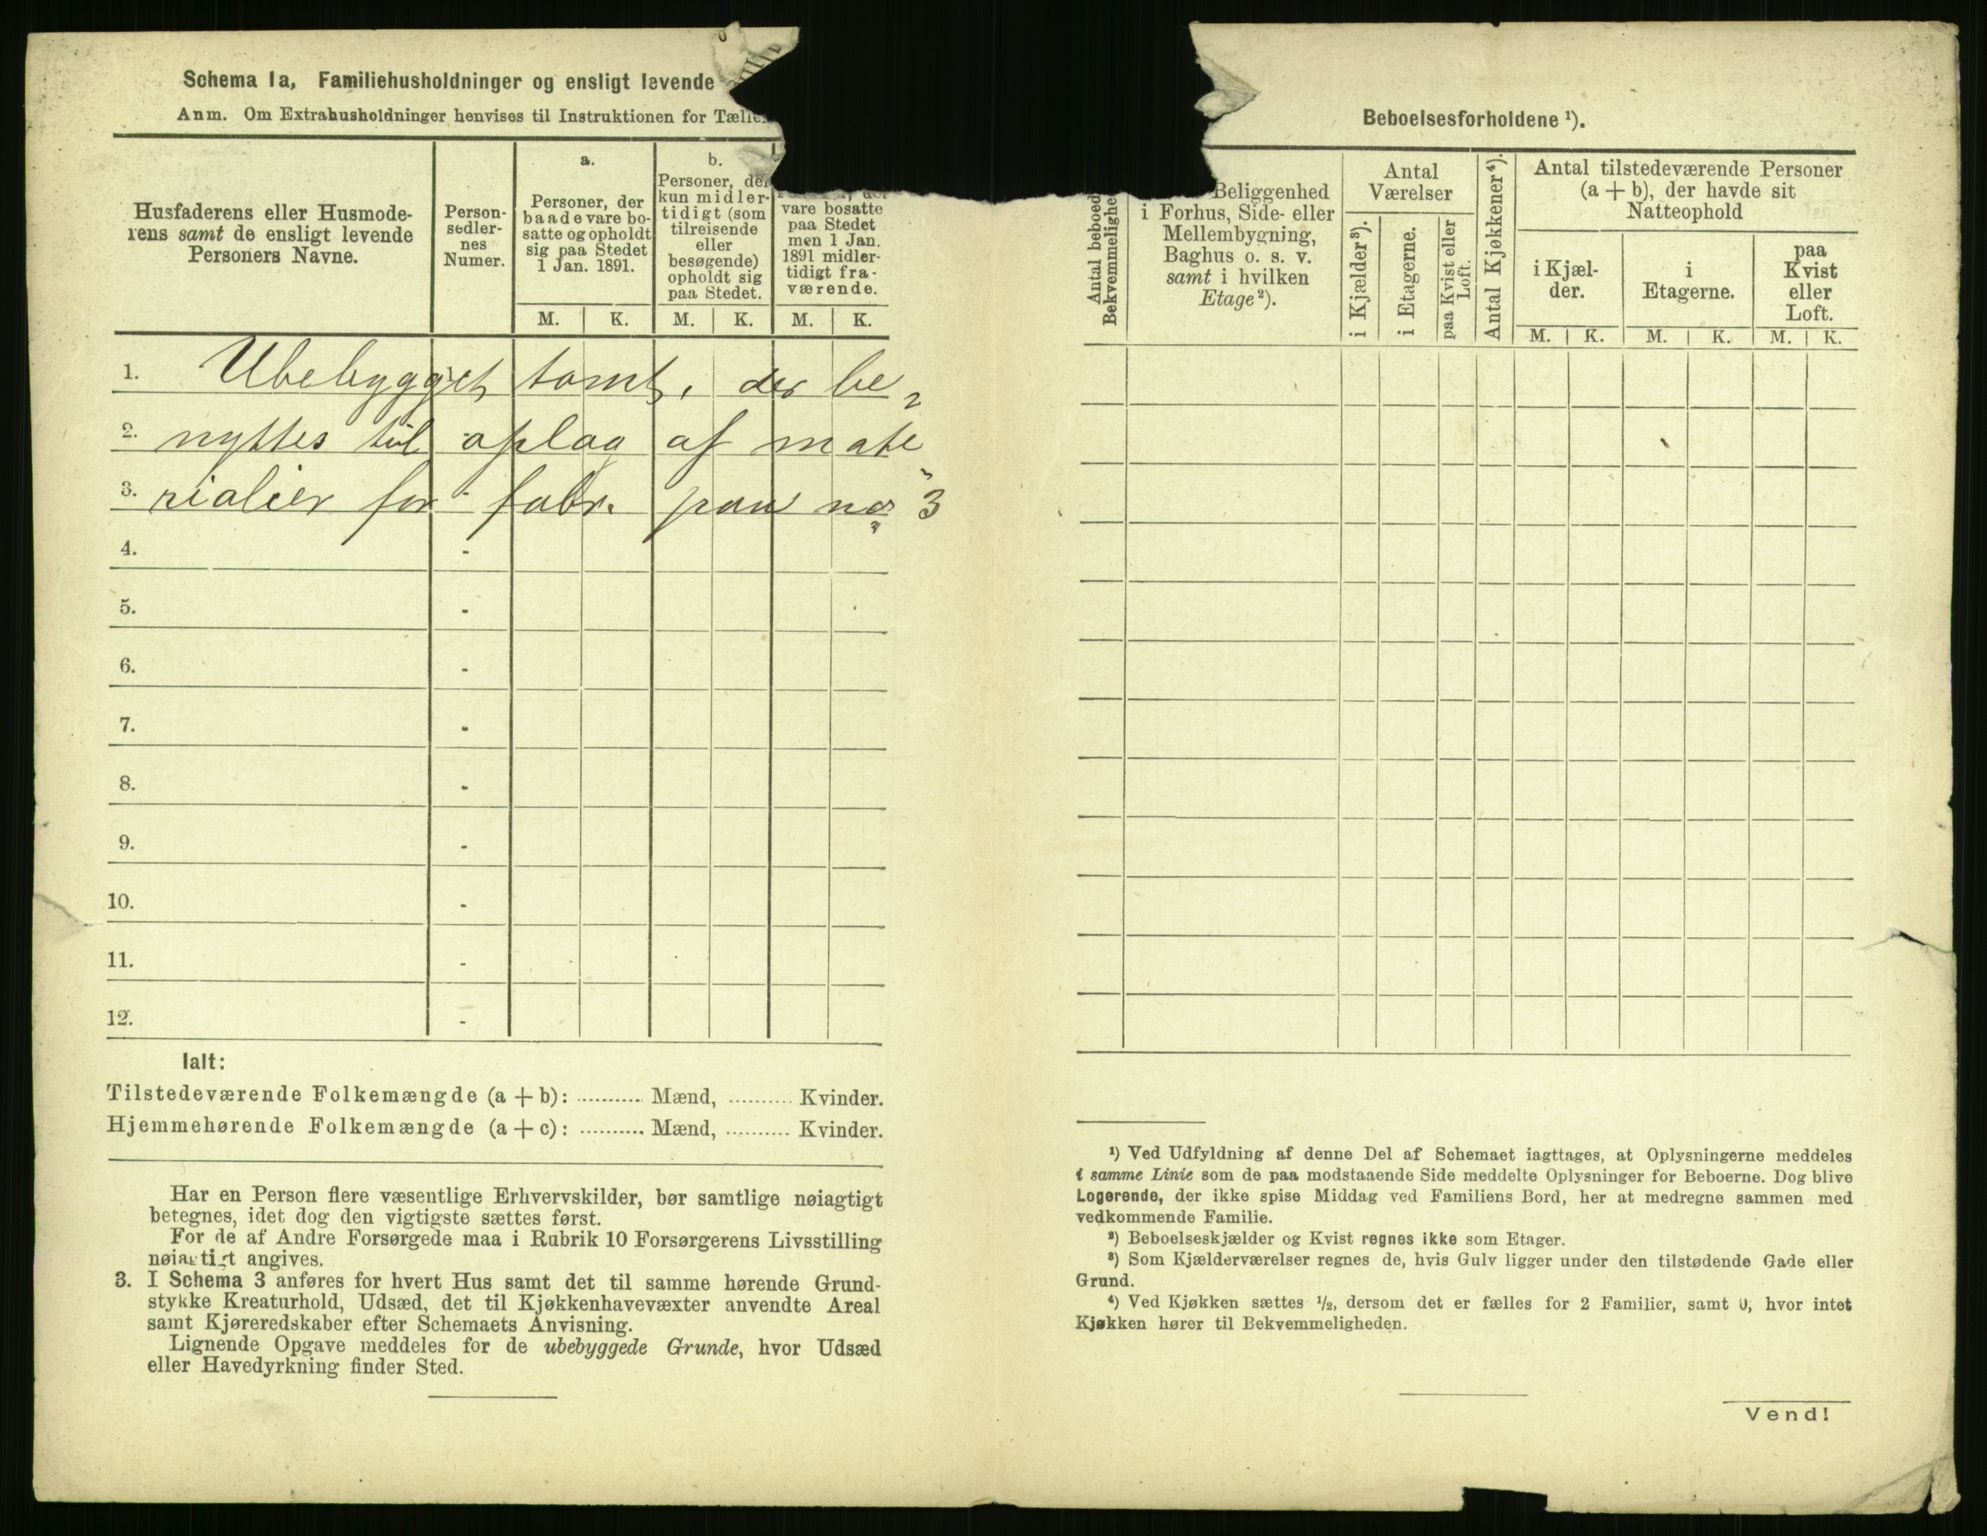 Schema 1a, Familiehusholdninger og ensligt levende
Anm. Om Extrahusholdninger henvises til Instruktionen for Tælle
Husfaderens eller Husmode-
rens samt de ensligt levende
Personers Navne.
Person-
sedler-
nes
Numer.
a.
Personer, der
baade vare bo-
satte og opholdt
sig paa Stedet
1 Jan. 1891.
b.
Personer, der
kun midler-
tidigt (som
tilreisende
eller
besøgende)
opholdt sig
paa Stedet.
vare bosatte
paa Stedet
men 1 Jan.
1891 midler-
tidigt fra-
værende.
M. K. M. K. M. K.
1. Ubebygget tomt, der be
2. nyttes til oplag af mate
3. rialier for fabr. paa no 3
4. -
5. -
6. -
7. -
8. -
9. -
10. -
11. -
12. -
Ialt:
Tilstedeværende Folkemængde (a + b): .......... Mænd, .......... Kvinder.
Hjemmehørende Folkemængde (a + c): .......... Mænd, .......... Kvinder.
Har en Person flere væsentlige Erhvervskilder, bør samtlige nøiagtigt
betegnes, idet dog den vigtigste sættes først.
For de af Andre Forsørgede maa i Rubrik 10 Forsørgerens Livsstilling
nøiagtigt angives.
3. I Schema 3 anføres for hvert Hus samt det til samme hørende Grund-
stykke Kreaturhold, Udsæd, det til Kjøkkenhavevæxter anvendte Areal
samt Kjøreredskaber efter Schemaets Anvisning.
Lignende Opgave meddeles for de ubebyggede Grunde, hvor Udsæd
eller Havedyrkning finder Sted.
Beboelsesforholdene ¹).
Antal beboede
Bekvemmeligheder
Beliggenhed
i Forhus, Side- eller
Mellembygning,
Baghus o. s. v.
samt i hvilken
Etage²).
Antal
Værelser
i Kjælder³).
i Etagerne.
paa Kvist eller
Loft.
Antal Kjøkkener⁴).
Antal tilstedeværende Personer
(a + b), der havde sit
Natteophold
i Kjæl-
der.
i
Etagerne.
paa
Kvist
eller
Loft.
M. K. M. K. M. K.
¹) Ved Udfyldning af denne Del af Schemaet iagttages, at Oplysningerne meddeles
i samme Linie som de paa modstaaende Side meddelte Oplysninger for Beboerne. Dog blive
Logerende, der ikke spise Middag ved Familiens Bord, her at medregne sammen med
vedkommende Familie.
²) Beboelseskjælder og Kvist regnes ikke som Etager.
³) Som Kjælderværelser regnes de, hvis Gulv ligger under den tilstødende Gade eller
Grund.
⁴) Ved Kjøkken sættes ½, dersom det er fælles for 2 Familier, samt 0, hvor intet
Kjøkken hører til Bekvemmeligheden.
Vend!